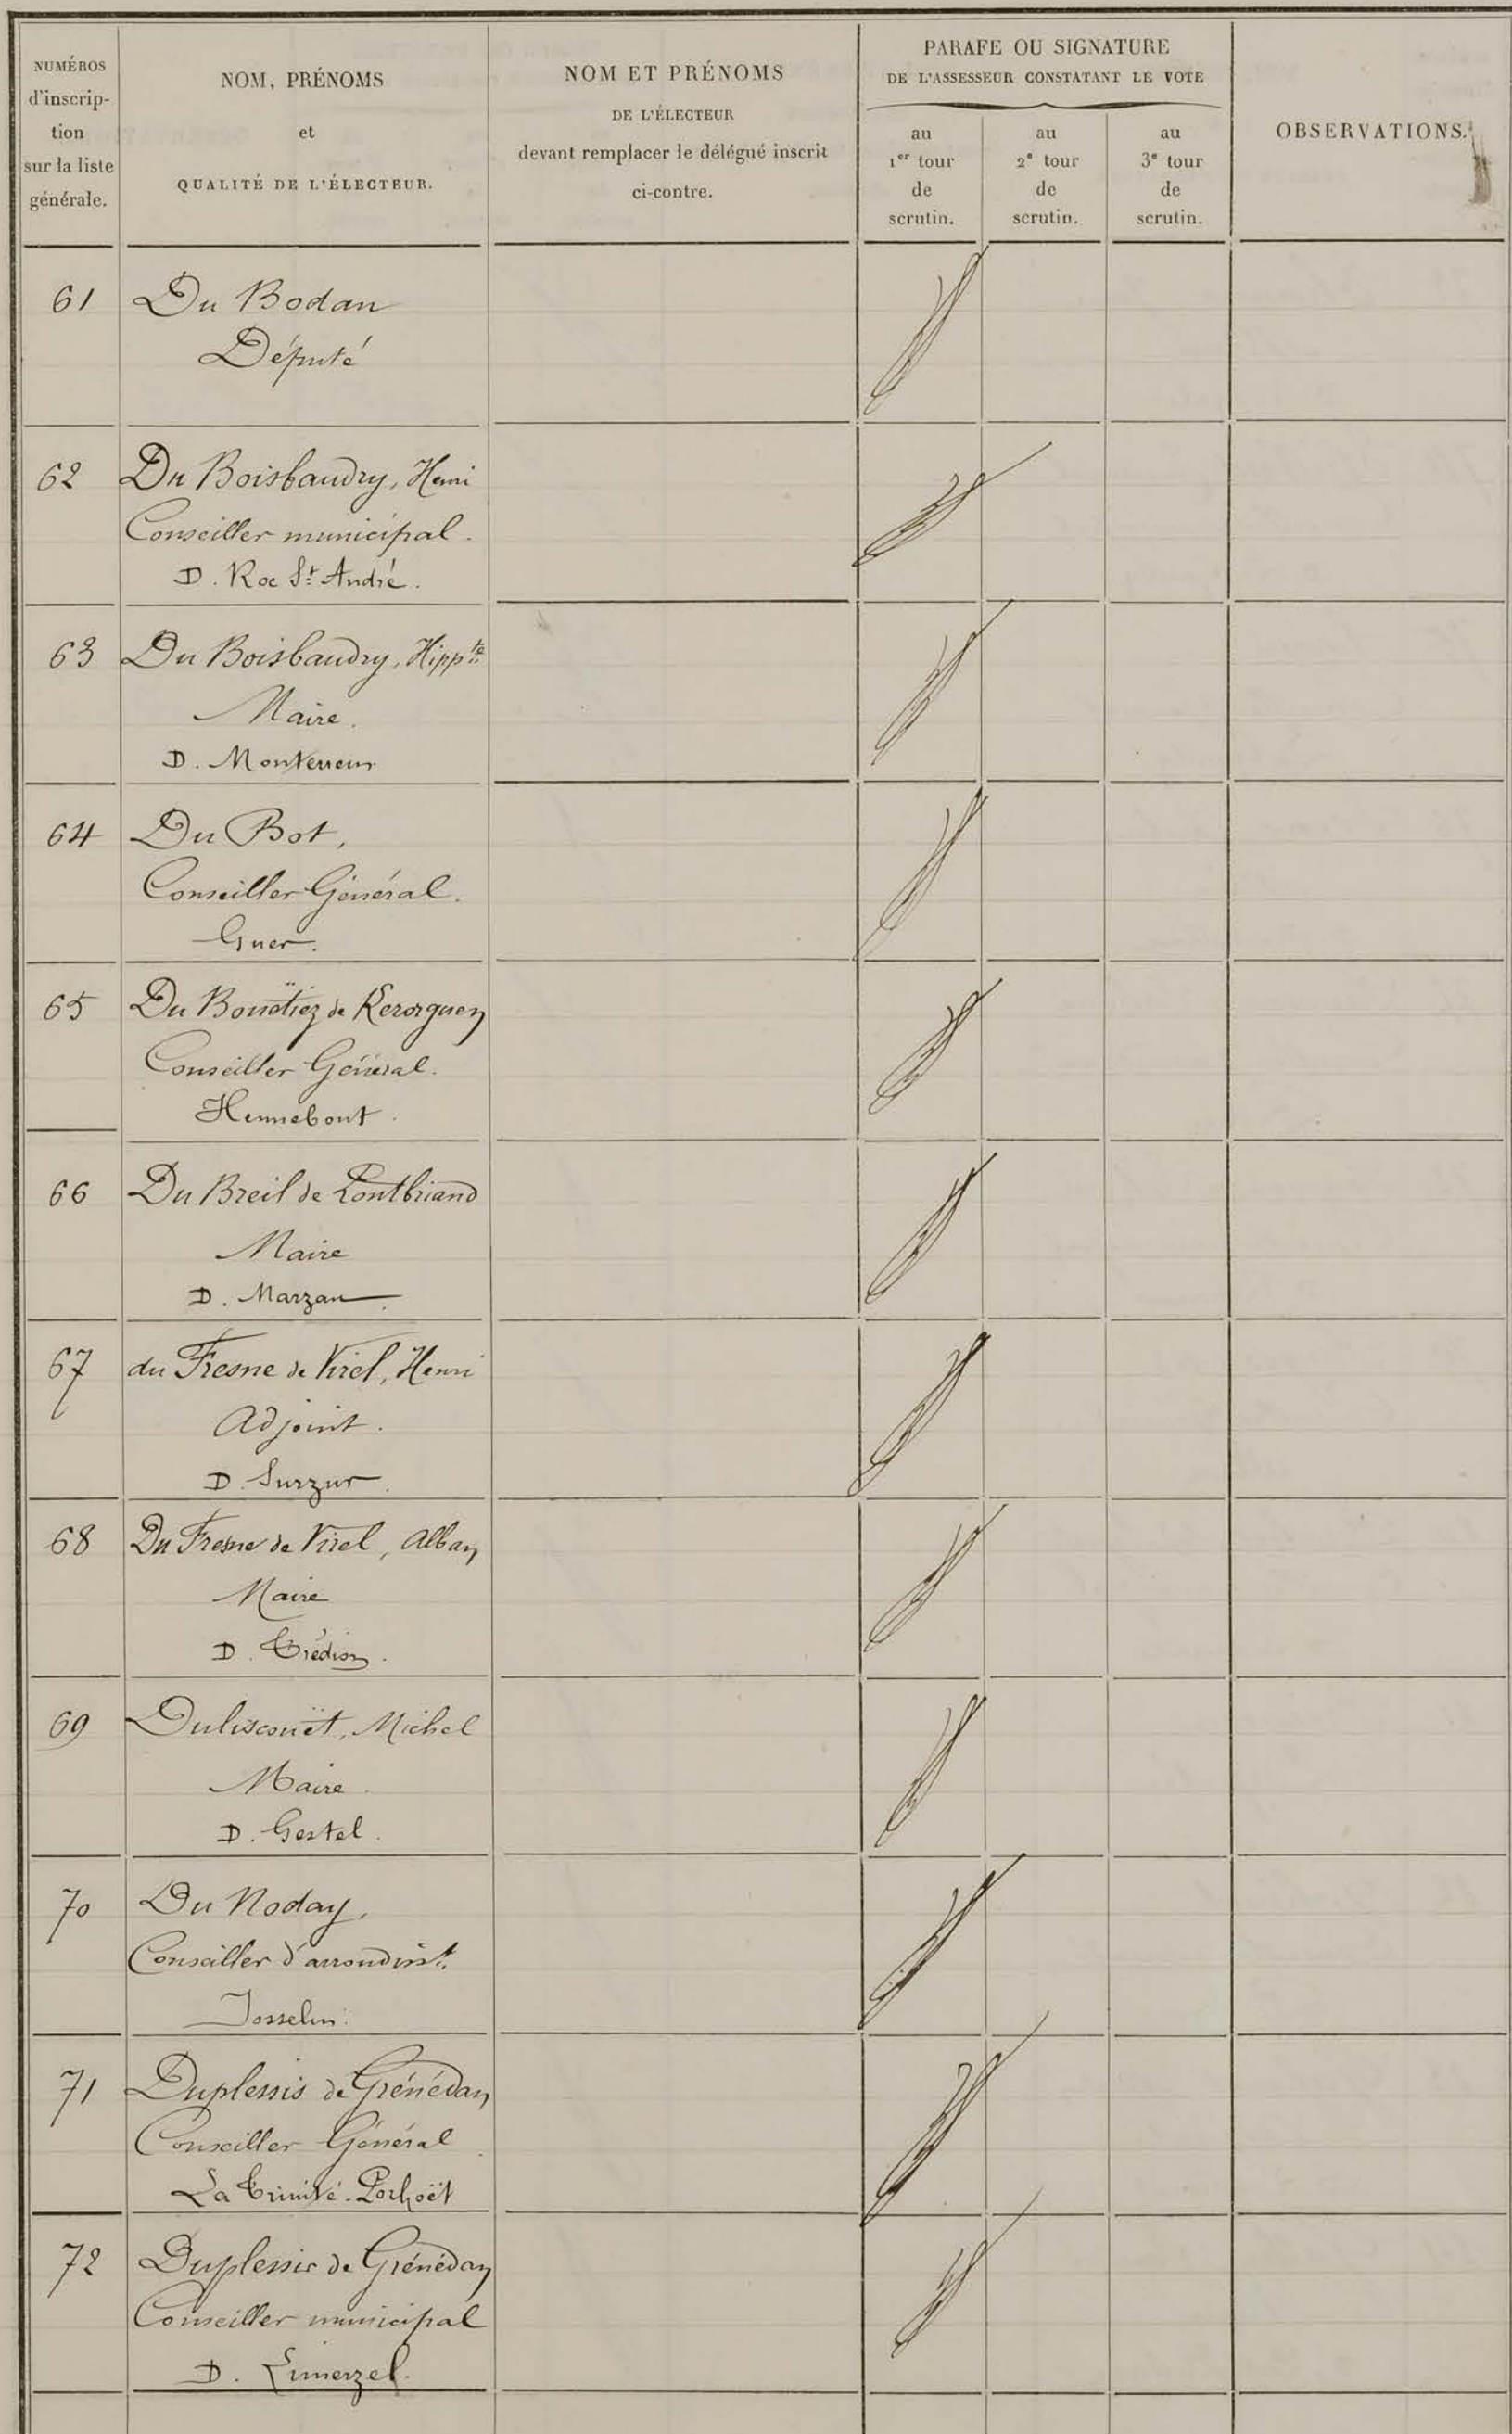 NUMÉROS
d'inscrip-
tion
sur la liste
générale.
NOM, PRÉNOMS
et
QUALITÉ DE L'ÉLECTEUR.
NOM ET PRÉNOMS
DE L'ÉLECTEUR
devant remplacer le délégué inscrit
ci-contre.
PARAFE OU SIGNATURE
DE L'ASSESSEUR CONSTATANT LE VOTE
au
1er tour
de
scrutin.
au
2e tour
de
scrutin.
au
3e tour
de
scrutin.
OBSERVATIONS.
61 Du Bodan
Député
62 Du Boisbaudry, Henri
Conseiller municipal.
D. Roc St André.
63 Du Boisbaudry, Hippte
Maire.
D. Monterrein
64 Du Bot,
Conseiller Général.
Guer.
65 Du Bouëtiez de Kerorguen
Conseiller Général.
Hennebont.
66 Du Breil de Pontbriand
Maire
D. Marzan.
67 du Fresne de Virel, Henri
Adjoint.
D. Surzur.
68 Du Fresne de Virel, Alban
Maire
D. Trédion.
69 Duliscouët, Michel
Maire.
D. Gestel.
70 Du Noday,
Conseiller d'arrondisst.
Josselin.
71 Duplessis de Grénédan
Conseiller Général
La Trinité-Porhoët
72 Duplessis de Grénédan
Conseiller municipal
D. Limerzel.